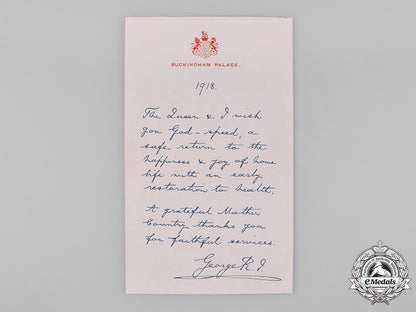 BUCKINGHAM PALACE.
1918.
The Queen & I wish
you God-speed, a
safe return to the
happiness & joy of home
life with an early
restoration to health.
A grateful Mother
Country thanks you
for faithful services.
George R.I.
eMedals